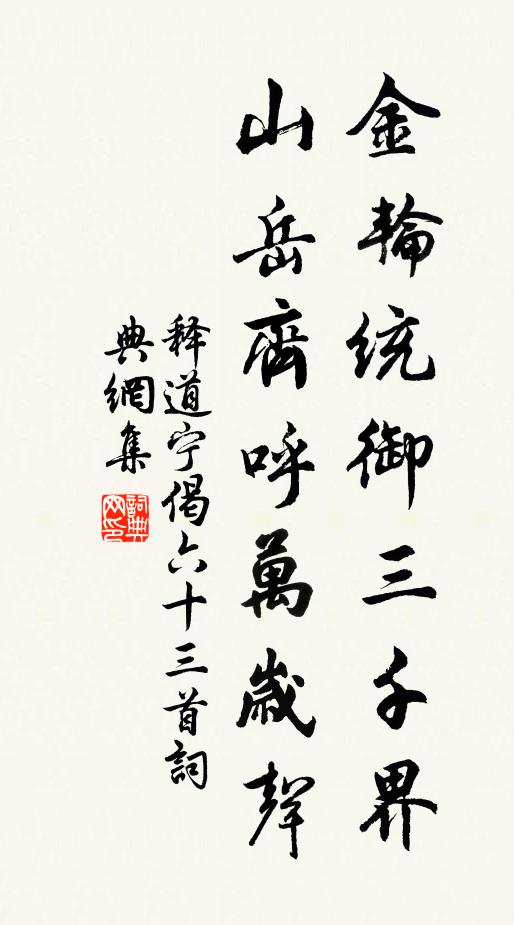 金輪統御三千界
山岳齊呼萬歲聲
释道宁偈六十三首詞
典網集
詞典
网印